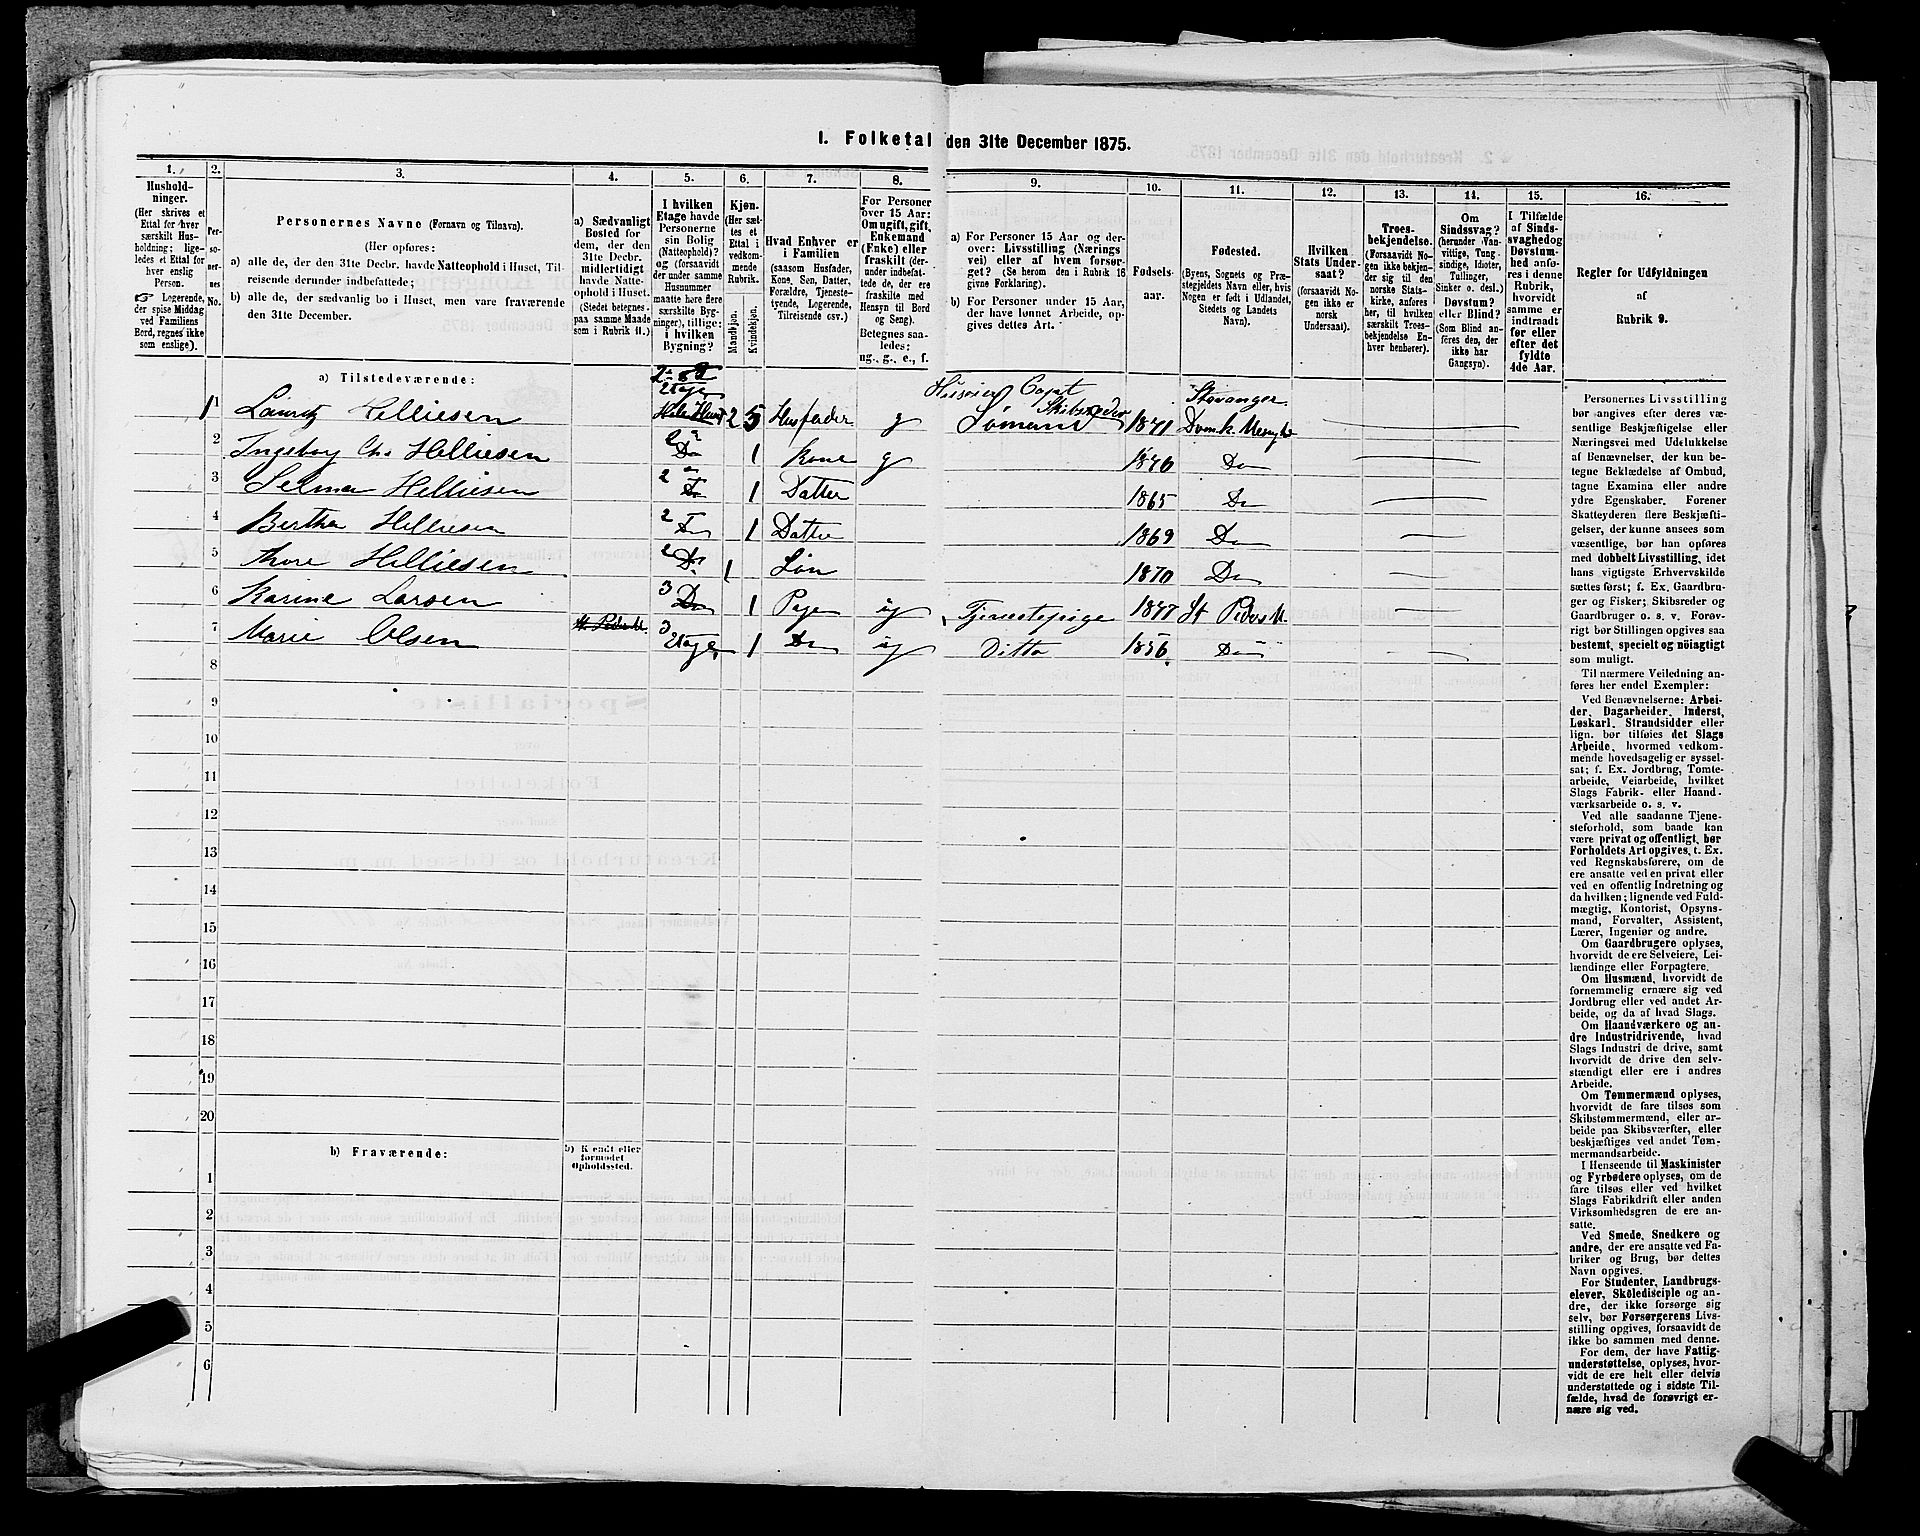 I. Folketal den 31te December 1875.
1. 2. 3. 4. 5. 6. 7. 8. 9. 10. 11. 12. 13. 14. 15. 16.
Hushold-
ninger.
(Her skrives et
Ettal for hver
særskilt Hus-
holdning; lige-
ledes et Ettal
for hver enslig
Person.
☞ Logerende,
der spise Middag
ved Familiens
Bord, regnes ikke
som enslige).
Per-
so-
ner-
nes
No.
Personernes Navne (Fornavn og Tilnavn).
(Her opføres:
a) alle de, der den 31te Decbr. havde Natteophold i Huset, Til-
reisende derunder indbefattede;
b) alle de, der sædvanlig bo i Huset, men vare fraværende
den 31te December.
a) Sædvanligt
Bosted for
dem, der den
31te Decbr.
midlertidigt
havde Natte-
ophold i Huset.
(Stedet betegnes
paa samme Maade
som i Rubrik 11.)
I hvilken
Etage havde
Personerne
sin Bolig
(Natteophold)?
og (forsaavidt
der under samme
Husnummer
maatte høre flere
særskilte Byg-
ninger), tillige:
i hvilken
Bygning?
Kjøn.
(Her sæt-
tes et
Ettal i
vedkom-
mende
Rubrik.
Mandkjøn.
Kvindekjøn.
Hvad Enhver er
i Familien
(saasom Husfader,
Kone, Søn, Datter,
Forældre, Tjeneste-
tyende, Logerende,
Tilreisende osv.)
For Personer
over 15 Aar:
Om ugift, gift,
Enkemand
(Enke) eller
fraskilt (der-
under indbefat-
tede de, der ere
fraskilte med
Hensyn til Bord
og Seng).
Betegnes saa-
ledes:
ug., g., e., f.
a) For Personer 15 Aar og der-
over: Livsstilling (Nærings
vei) eller af hvem forsør-
get? (Se herom den i Rubrik 16
givne Forklaring).
b) For Personer under 15 Aar,
der have lønnet Arbeide, op-
gives dettes Art.
Fødsels-
aar.
Fødested.
(Byens, Sognets og Præ-
stegjeldets Navn eller, hvis
Nogen er født i Udlandet,
Stedets og Landets
Navn).
Hvilken
Stats Under-
saat?
(forsaavidt No-
gen ikke er
norsk
Undersaat).
Troes-
bekjendelse.
(Forsaavidt No-
gen ikke bekjen-
der sig til den
norske Stats-
kirke, anføres
her, til hvilken
særskilt Troes-
bekjendelse En-
hver henhører).
Om
Sindssvag?
(herunder Van-
vittige, Tung-
sindige, Idioter,
Tullinger,
Sinker o. desl.)
Døvstum?
eller Blind?
(Som Blind an-
føres den, der
ikke har
Gangsyn).
I Tilfælde
af Sinds-
svaghed og
Døvstum-
hed anfø-
res i denne
Rubrik,
hvorvidt
samme er
indtraadt
før eller
efter det
fyldte
4de Aar.
Regler for Udfyldningen
af
Rubrik 9.
a) Tilstedeværende:
2 Etage
1 1 Lauritz Helliesen Hele Huset 2 5 Husfader g Huseier Capt Skibsreder Sømand 1841 Stavanger Domk. Menighe
2 Ingeborg Chr Helliesen 2 Do 1 Kone g 1846 Do
3 Selma Helliesen 2 Do 1 Datter 1865 Do
4 Bertha Helliesen 2 Do 1 Datter 1869 Do
5 Thore Helliesen 2 Do 1 Søn 1870 Do
6 Karine Larsen 3 Do 1 Pige ug Tjenestepige 1847 St Peders M.
7 Marie Olsen St Peders M. 3 2 Etage 1 Do ug Ditto 1856 Do
8
9
10
11
12
13
14
15
16
17
18
19
20
b) Fraværende: b) Kjendt eller
formodet
Opholdssted.
1
2
3
4
5
6
Personernes Livsstilling
bør angives efter deres væ-
sentlige Beskjæftigelse eller
Næringsvei med Udelukkelse
af Benævnelser, der kun be-
tegne Beklædelse af Ombud,
tagne Examina eller andre
ydre Egenskaber. Forener
Skatteyderen flere Beskjæfti-
gelser, der kunne ansees som
væsentlige, bør han opføres
med dobbelt Livsstilling, idet
hans vigtigste Erhvervskilde
sættes først; f. Ex. Gaardbru-
ger og Fisker; Skibsreder og
Gaardbruger o. s. v. Forøv-
rigt bør Stillingen opgives saa
bestemt, specielt og nöiagtigt
som muligt.
Til nærmere Veiledning an-
føres her endel Exempler:
Ved Benævnelserne: Arbei-
der, Dagarbeider, Inderst,
Løskarl, Strandsidder eller
lign. bør tilføies det Slags
Arbeide, hvormed vedkom-
mende hovedsagelig er syssel-
sat; f. Ex. Jordbrug, Tomte-
arbeide, Veiarbeide, hvilket
Slags Fabrik- eller Haand-
værksarbeide o. s. v.
Ved alle saadanne Tjene-
steforhold, som baade kan
være privat og offentligt, bør
Forholdets Art opgives, t. Ex.
ved Regnskabsførere, om de
ere ansatte ved en privat eller
ved en offentlig Indretning og
da hvilken; lignende ved Fuld-
mægtig, Kontorist, Opsyns-
mand, Forvalter, Assistent,
Lærer, Ingeniør og andre.
Om Gaardbrugere oplyses,
hvorvidt de ere Selveiere, Lei-
lændinge eller Forpagtere.
Om Husmænd, hvorvidt de
fornemmelig ernære sig ved
Jordbrug eller ved andet Ar-
beide, og da af hvad Slags.
Om Haandværkere og an-
dre Industridrivende, hvad
Slags Industri de drive, samt
hvorvidt de drive den selv-
stændigt eller ere i andres
Arbeide.
Om Tømmermænd oplyses,
hvorvidt de fare tilsøs som
Skibstømmermænd, eller ar-
beide paa Skibsværfter, eller
beskjæftiges ved andet Tøm-
mermandsarbeide.
I Henseende til Maskinister
og Fyrbødere oplyses, om de
fare tilsøs eller ved hvilket
Slags Fabrikdrift eller anden
Virksomhedsgren de ere an-
satte.
Ved Smede, Snedkere og
andre, der ere ansatte ved Fa-
briker og Brug, bør dettes
Navn opgives.
For Studenter, Landbrugs-
elever, Skoledisciple og an-
dre, der ikke forsørge sig
selv, bør Forsørgerens Livs-
stilling opgives, forsaavidt de
ikke bo sammen med denne.
For dem, der have Fattig-
understøttelse, oplyses, hvor-
vidt de ere helt eller delvis
understøttede og i sidste Til-
fælde, hvad de forøvrigt er-
nære sig ved.